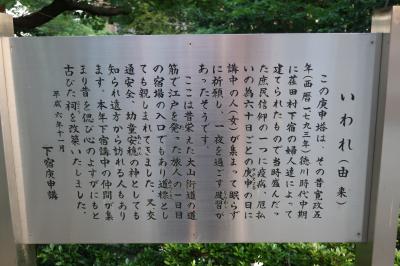 いわれ(由来)
この庚申塔は、その昔寛政五
年(西暦一七九三年)徳川時代中期
に荏田村下宿の婦人達によって
建てられたもので当時盛んだっ
た庶民信仰の一つに疫病、厄払
いの為六十日ごとの庚申の日に
講中の人(女)が集まって眠らず
に祈願し、一夜を過ごす風習が
あったそうです。
ここは昔栄えた大山街道の道
筋で江戸を発った旅人の一日目
の宿場の入口でもあり道標とし
ても親しまれてきました。又交
通安全、幼童安穏の神としても
知られ遠方から訪れる人もあり
ます。本年下宿講中の仲間が集
まり昔を偲び心のよすがにもと
古びた祠を改築いたしました。
平成六年十一月
下宿庚申講